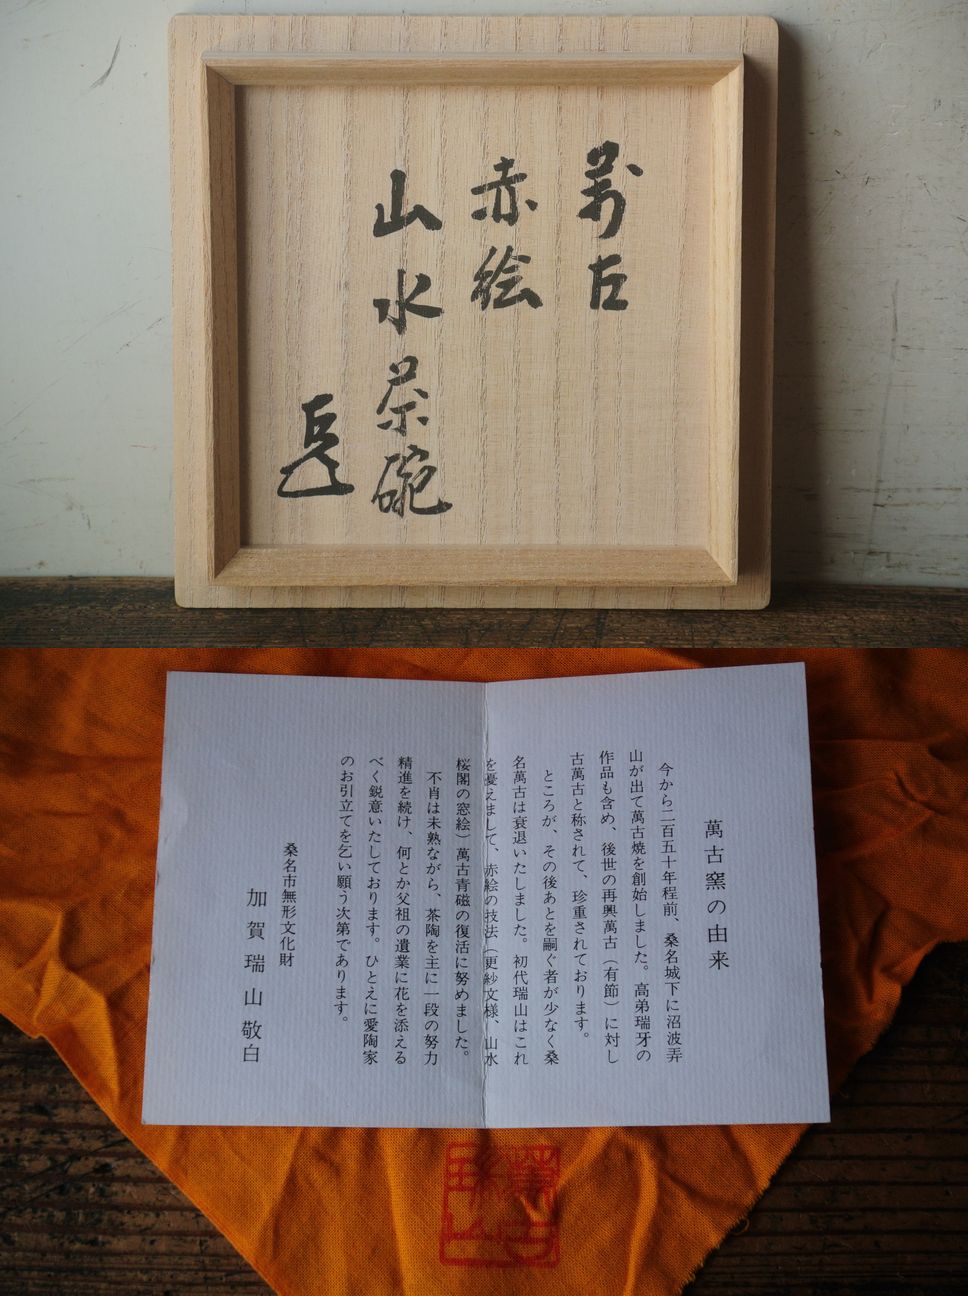 萬古
赤絵
山水茶碗
萬古窯の由来
今から二百五十年程前、桑名城下に沼波弄
山が出て萬古焼を創始しました。高弟瑞牙の
作品も含め、後世の再興萬古（有節）に対し
古萬古と称されて、珍重されております。
ところが、その後あとを嗣ぐ者が少なく桑
名萬古は衰退いたしました。初代瑞山はこれ
を憂えまして、赤絵の技法（更紗文様、山水
桜閣の窓絵）萬古青磁の復活に努めました。
不肖は未熟ながら、茶陶を主に一段の努力
精進を続け、何とか父祖の遺業に花を添える
べく鋭意いたしております。ひとえに愛陶家
のお引立てを乞い願う次第であります。
桑名市無形文化財
加賀瑞山敬白
萬古
瑞山